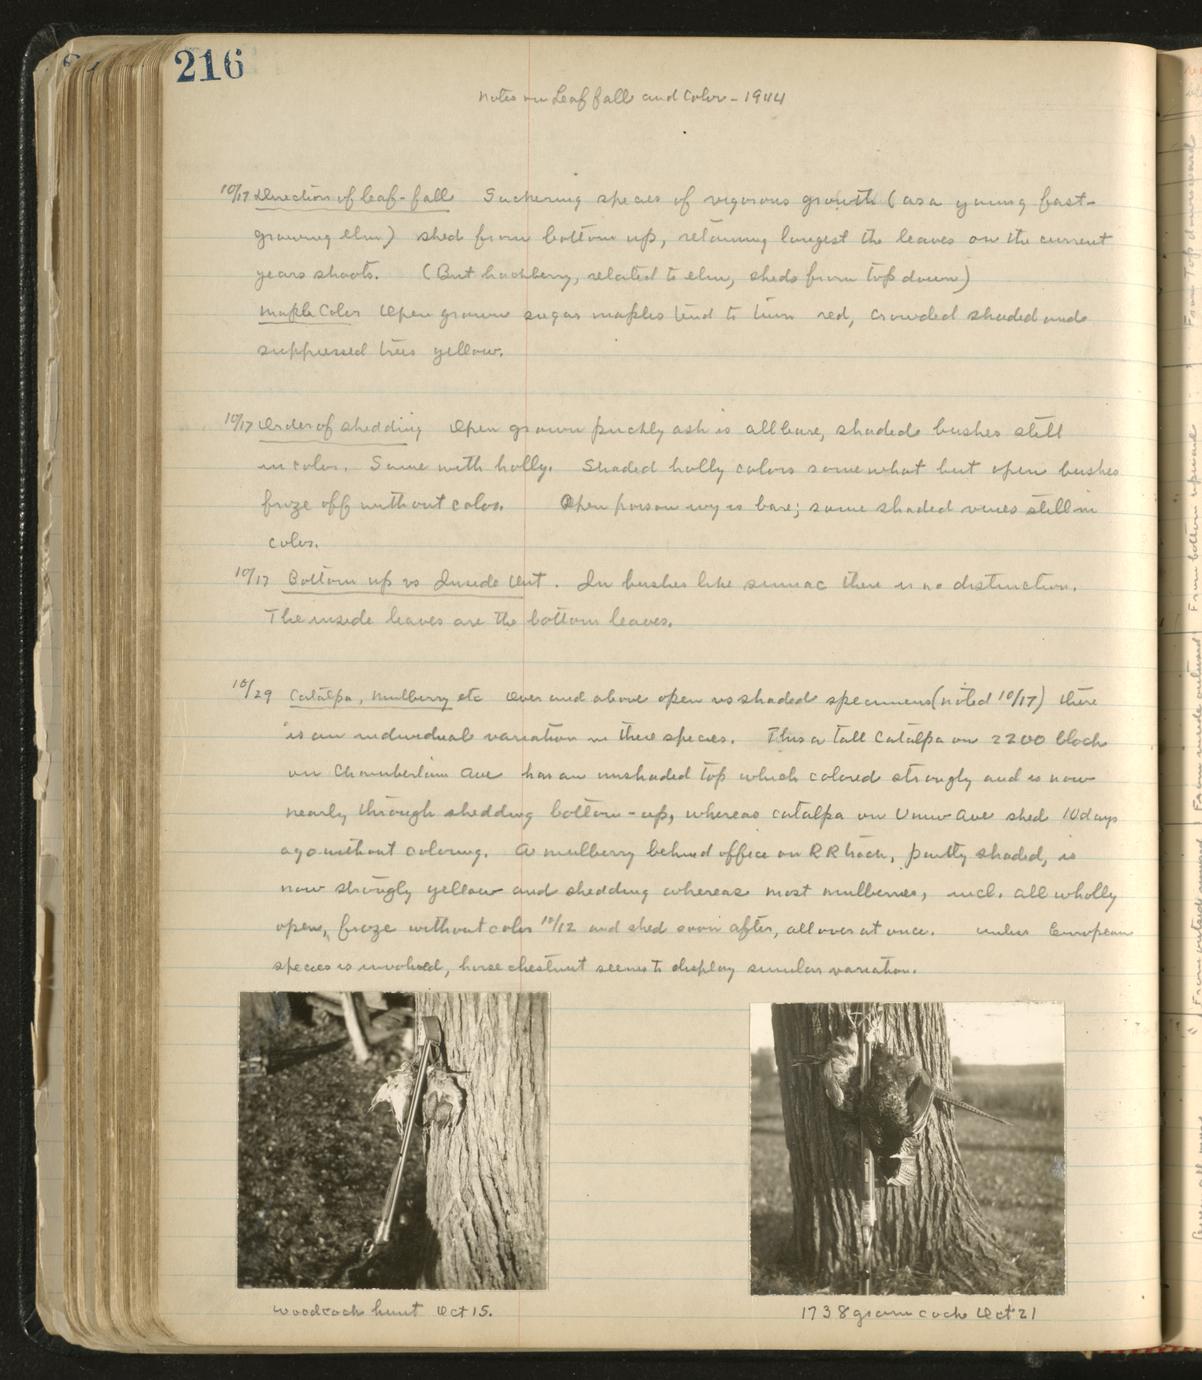 216
Notes on Leaf fall and Color - 1944
10/17 Direction of leaf-fall Suckering species of vigorous growth (as a young fast-
growing elm) shed from bottom up, retaining longest the leaves on the current
years shoots. (But hackberry, related to elm, sheds from top down)
Maple Color Open grown sugar maples tend to turn red, crowded shaded and
suppressed trees yellow.
10/17 Order of shedding Open grown prickly ash is all bare, shaded bushes still
in color. Same with holly. Shaded holly colors somewhat but open bushes
froze off without color. Open poison ivy is bare; some shaded vines still in
color.
10/17 Bottom up vs Inside Out. In bushes like sumac there is no distinction.
The inside leaves are the bottom leaves.
10/29 Catalpa, Mulberry etc Over and above open vs shaded specimens (noted 10/17) there
is an individual variation in these species. Thus a tall Catalpa on 2200 block
on Chamberlain Ave has an unshaded top which colored strongly and is now
nearly through shedding bottom-up, whereas catalpa on Univ Ave shed 10 days
ago without coloring. A mulberry behind office on RR track, partly shaded, is
now strongly yellow and shedding whereas most mulberries, incl. all wholly
open, froze without color 10/12 and shed soon after, all over at once. Unless European
species is involved, horse chestnut seems to display similar variation.
Woodcock hunt Oct 15.
1738 gram cock Oct 21